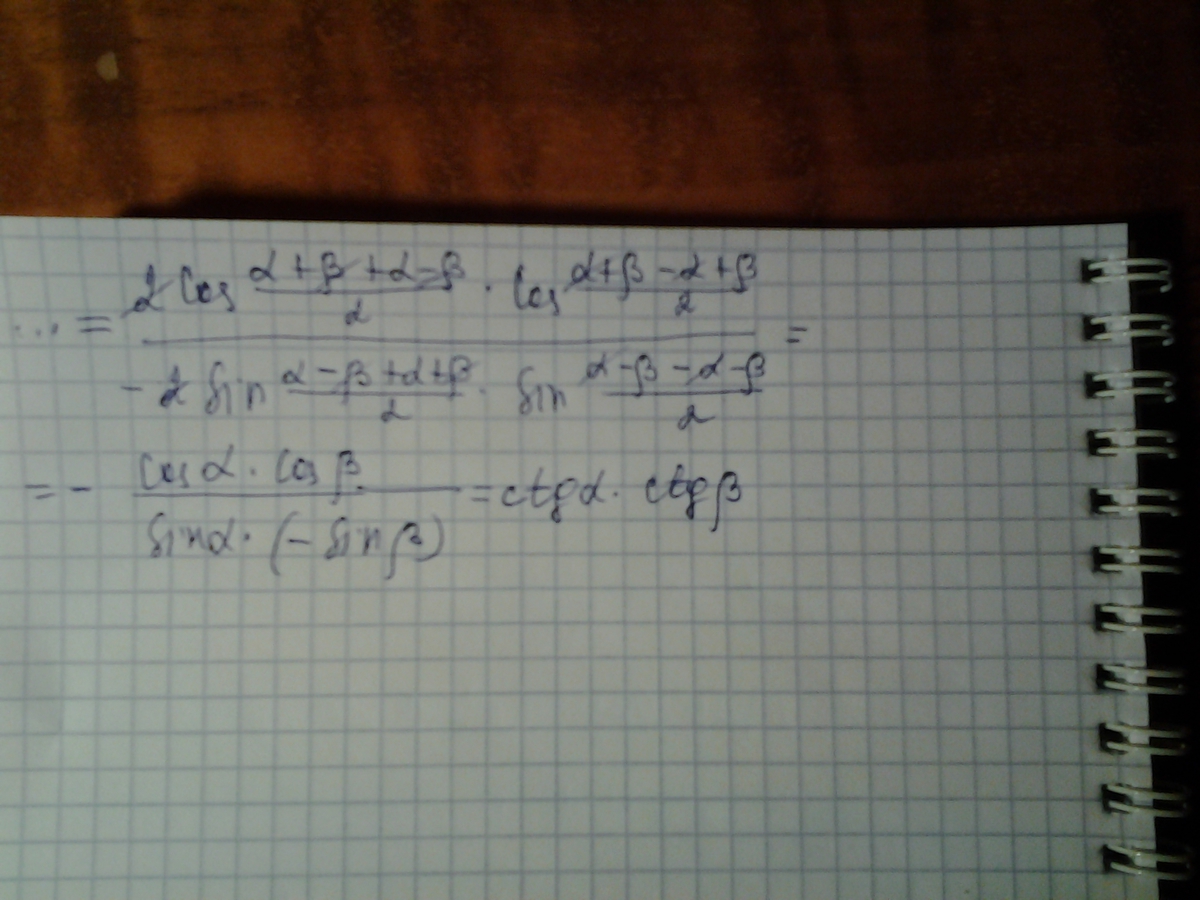 ... = (2 cos (α + β + α - β)/2 · cos (α + β - α + β)/2) / (-2 sin (α - β + α + β)/2 · sin (α - β - α - β)/2) =
= - (cos α · cos β) / (sin α · (- sin β)) = ctg α · ctg β